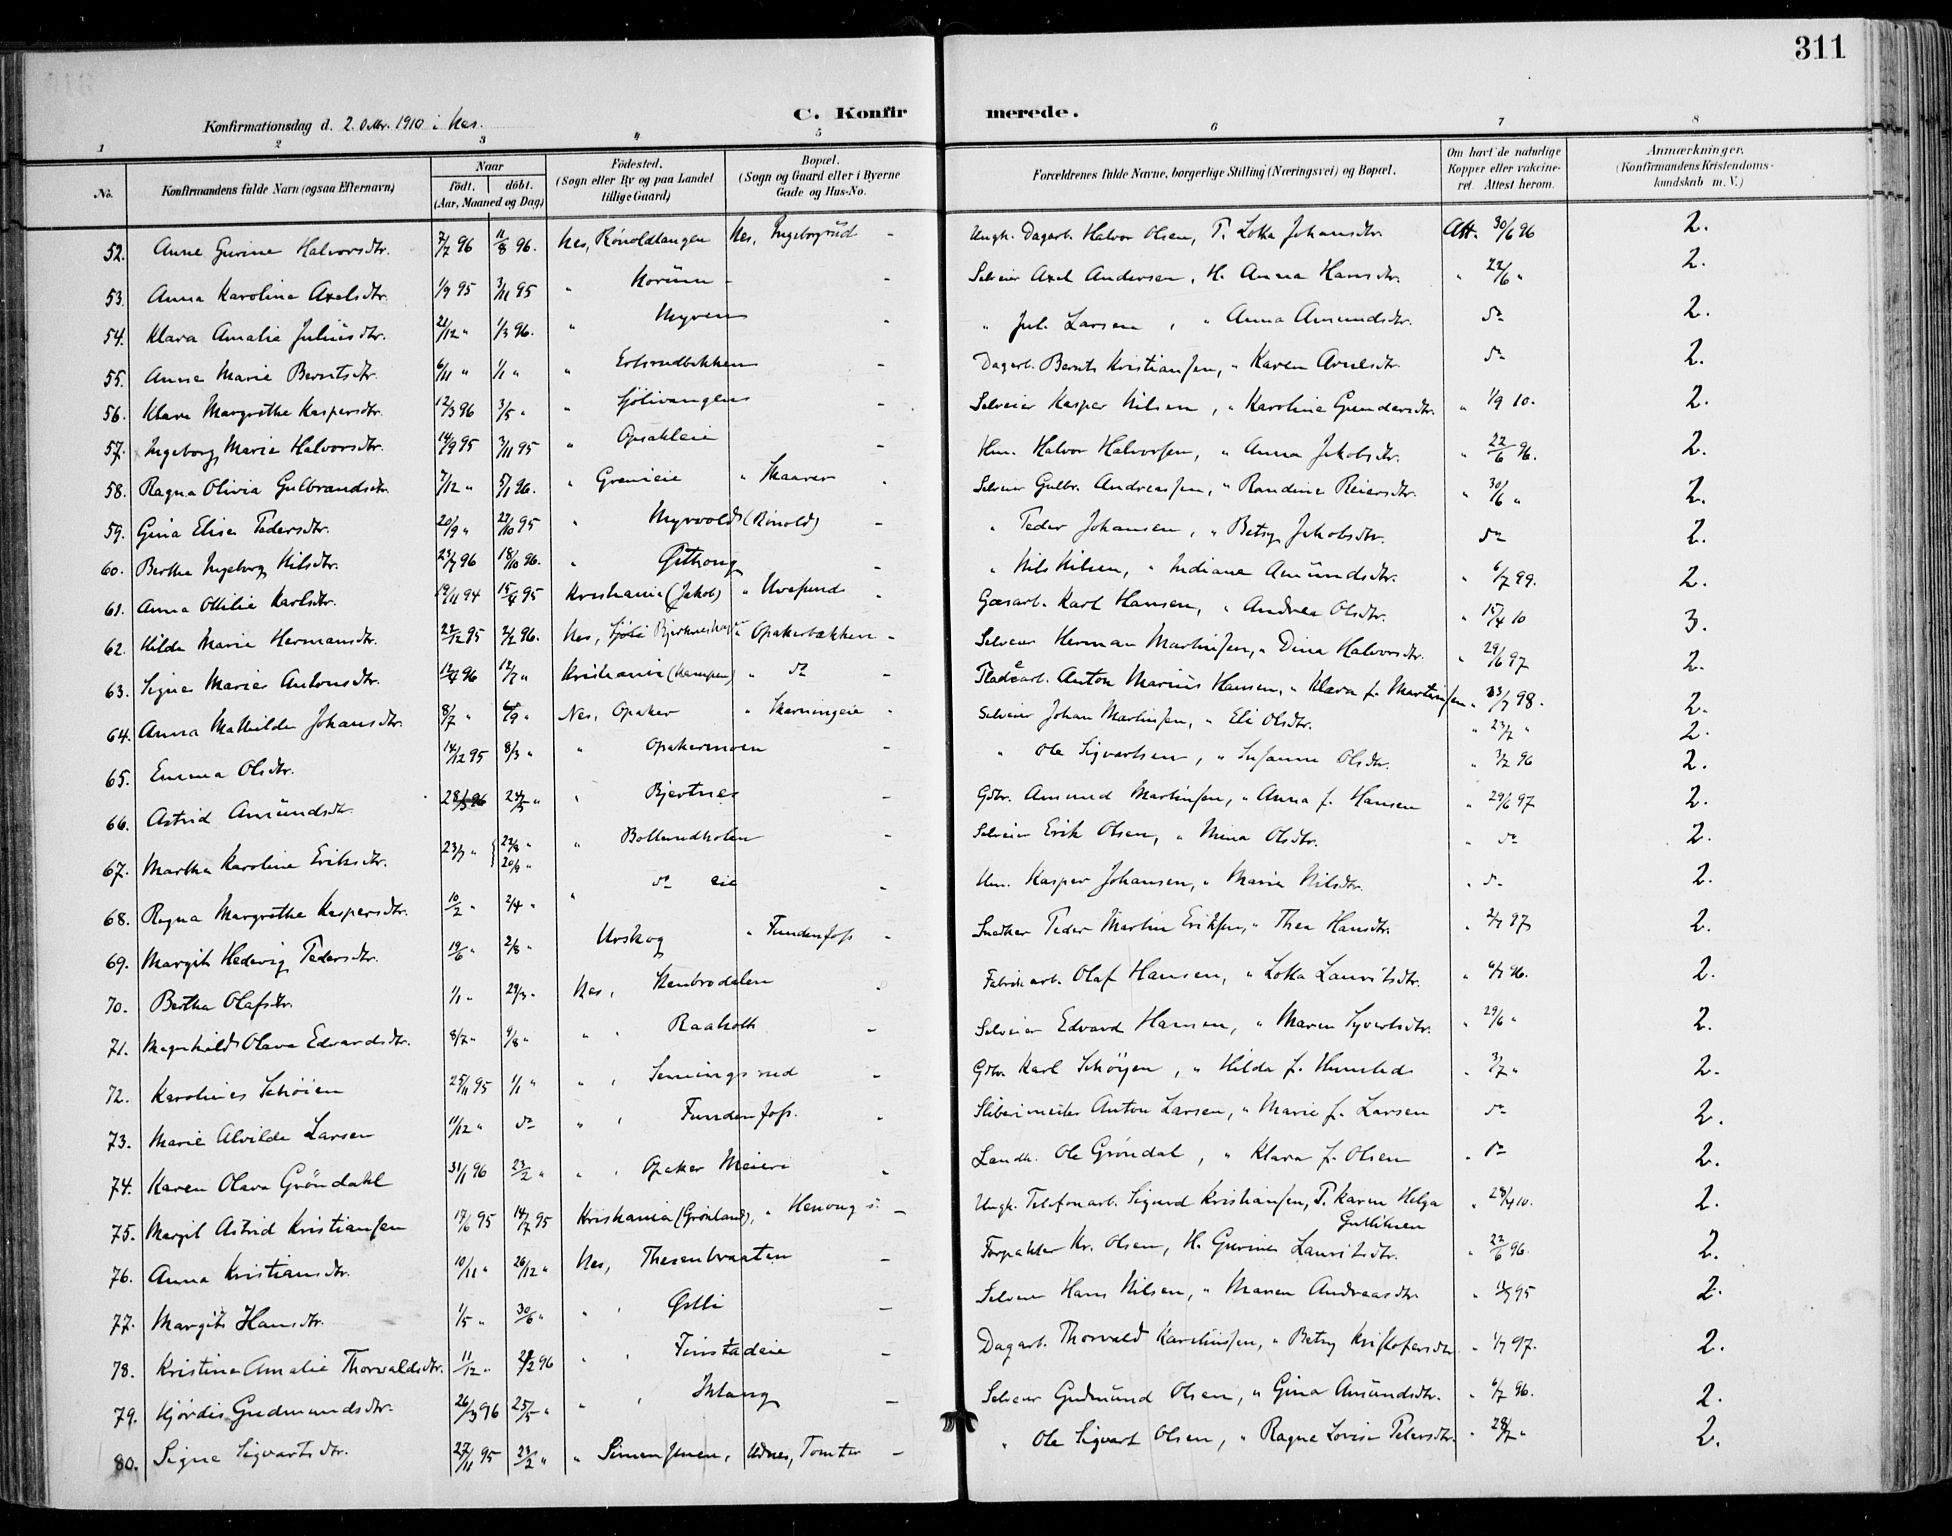 311
Konfirmationsdag d. 2. Oktbr. 1910 i Nes.
C. Konfirmerede.
1 2 3 4 5 6 7 8
No. Konfirmandens fulde Navn (ogsaa Efternavn) Naar födt. döbt. (Aar, Maaned og Dag) Födested. (Sogn eller By og paa Landet tillige Gaard) Bopæl. (Sogn og Gaard eller i Byerne Gade og Hus-No. Forældrenes fulde Navne, borgerlige Stilling (Næringsvei) og Bopæl. Om havt de naturlige Kopper eller vaccineret. Attest herom. Anmærkninger. (Konfirmandens Kristendomskundskab m. V.)
52. Anne Gurine Halvorsdtr. 7/7 96 11/8 96. Nes, Rönoldtangen Nes, Ingeborgrud - Ungk. Dagarb. Halvor Olsen, P. Lotta Johansdtr. Att. 30/6 96 2.
53. Anna Karoline Axelsdtr. 1/9 95 3/11 95 " - - Selveier Axel Andersen, H. Anna Hansdtr. " 22/6 " 2.
54. Klara Amalie Juliusdtr. 21/12 " 1/3 96. " Myren - " Jul. Larsen, " Anna Amundsdtr. do 2.
55. Anna Marie Berntsdtr. 6/11 " 1/1 " " - Dagarb. Bernts Kristiansen, " Karen Arnesdtr. do 2.
56. Klara Margrethe Kaspersdtr. 12/3 96 3/5 " " Sjölivangen - Selveier Kasper Nilsen, " Karoline Gundersdtr. " 1/9 10. 2.
57. Ingeborg Marie Halvorsdtr. 14/9 95 3/11 95 " Opakleie - Hm. Halvor Halvorsen, " Anna Jakobsdtr. " 22/6 96. 2.
58. Ragna Olivia Gulbrandsdtr. 7/12 " 5/1 96. " Grenieie " Skaarer - Selveier Gulbr. Andreassen, " Randine Reiersdtr. " 30/6 " 2.
59. Gina Elise Pedersdtr. 20/9 " 27/10 95 " Myrvold (Rönold) - " Peder Johansen, " Betsy Jakobsdtr. do 2.
60. Berthe Ingeborg Nilsdtr. 23/7 96 18/10 96. " - " Nils Nilsen, " Indiane Amundsdtr. " 6/7 99. 2.
61. Anna Ottilie Karlsdtr. 19/11 94 15/4 95 Kristiania (Jakob) " Uvesund - Gasarb. Karl Hansen, " Andrea Olsdtr. " 15/4 10 3.
62. Hilda Marie Hermansdtr. 22/12 95 2/2 96. Nes, Opakerbakken - Selveier Herman Martinsen, " Dina Halvorsdtr. " 29/6 97 2.
63. Signe Marie Antonsdtr. 12/4 96 12/7 " Kristiania (Kampen) " do - Pladearb. Anton Marius Hansen, " Klara f. Martinsen " 98. 2.
64. Anna Mathilde Johansdtr. 8/7 " 6/9 " Nes, Opaker " Skarningeie - Selveier Johan Martinsen, " Eli Olsdtr. " 23/7 " 2.
65. Emma Olsdtr. 14/12 95 8/3 " " Opakermoen - " Ole Sigvartsen, " Susanne Olsdtr. " 3/7 96 2.
66. Astrid Amundsdtr. 24/5 " " Bjertnes - Gdbr. Amund Martinsen, " Anna f. Hansen " 29/6 97 2.
67. Martha Karoline Eriksdtr. 23/7 " { 23/8 " 20/9 " " Bollerudholen - Selveier Erik Olsen, " Mina Olsdtr. " do 2.
68. Ragna Margrethe Kaspersdtr. 10/2 " 2/4 " " do eie - Hm. Kasper Johansen, " Marie Nilsdtr. " do 2.
69. Margit Hedevig Pedersdtr. 19/6 " 2/8 " Urskog " Fundenfoss - Snedker Peder Martin Eriksen, " Thea Hansdtr. " 2/7 97 2.
70. Bertha Olafsdtr. 1/1 " 29/3 " Nes, Stenbrodalen - Fabrikarb. Olaf Hansen, " Lotta Lauritsdtr. " 6/7 96. 2.
71. Magnhild Olava Edvardsdtr. 8/7 " 9/8 " " , Raaholt - Selveier Edvard Hansen, " Maren Syvertsdtr. " 29/6 " 2.
72. Karoline Schöien 25/11 95 1/1 " " , Henningsrud - Gdbr. Karl Schöyen, " Hilda f. Humled " 3/7 " 2.
73. Marie Alvilde Larsen 11/12 " do " , Fundenfoss. - Sliberimester Anton Larsen, " Marie f. Larsen do 2.
74. Karen Olava Gröndahl 31/1 96 23/2 " " , Opaker Meieri - Landh. Ole Gröndal, " Klara f. Olsen " do 2.
75. Margit Astrid Kristiansen 17/6 95 14/7 95 Kristiania (Grönland), " - Ungk. Telefonarb. Sigurd Kristiansen, P. Karen Helga Gulliksen " 28/4 10. 2.
76. Anna Kristiansdtr. 10/11 " 26/12 " Nes, Thesenbraaten - Forpakter Kr. Olsen, H. Gurine Lauritsdtr. " 22/6 96. 2.
77. Margit Hansdtr. 1/5 " 30/6 " " , Östli - Selveier Hans Nilsen, " Maren Andreasdtr. " 95 2.
78. Kristine Amalie Thorvaldsdtr. 11/12 " 96 " , Finstadeie - Dagarb. Thorvald Karelinssen, " Betsy Kristofersdtr. " 1/7 97. 2.
79. Hjördis Gudmundsdtr. 26/3 96 25/5 " " , Ihlang - Selveier Gudmund Olsen, " Gina Amundsdtr. " 6/7 96. 2.
80. Signe Sigvartsdtr. 27/11 95 23/2 " " Udnes, Tomter - " Ole Sigvart Olsen, " Ragna Lovise Petersdtr. " 28/7 " 2.